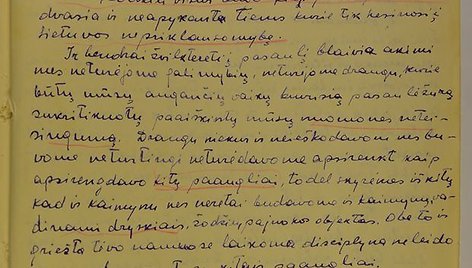 dvasia ir neapykanta tiems kurie tik kėsinosi į
Lietuvos nepriklausomybę.
Ir bendrai žvilkterėti į pasaulį blaivia akimi
mes neturėjome galimybių, neturėjome draugų, kurie
būtų mūsų augančių vaikų kuriu pasaulėžiūrą
sukritikuotų paaiškintų mūsų nuomonės netei-
singumą. Draugų niekur ir neieškodavom nes bu-
vome neturtingi neturėdavome apsirengt kaip
apsirengdavo kiti paaugliai, todėl skyrėmės iš kitų
kad ir kaimynų nes neretai būdavome ir kaimynų va-
dinami driskiais, žodžiu pajuokos objektas. Be to ir
griežta tėvo namuose laikoma disciplina neleido
paaugliai.